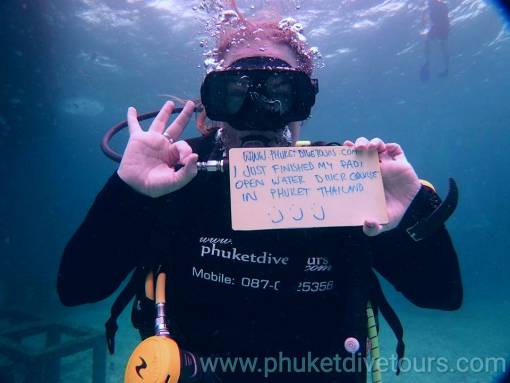 WWW.PHUKETDIVETOURS.COM
I JUST FINISHED MY PADI
OPEN WATER DIVER COURSE
IN PHUKET THAILAND
www.
phuketdive urs
.com
Mobile: 087-0 25358
www.phuketdivetours.com